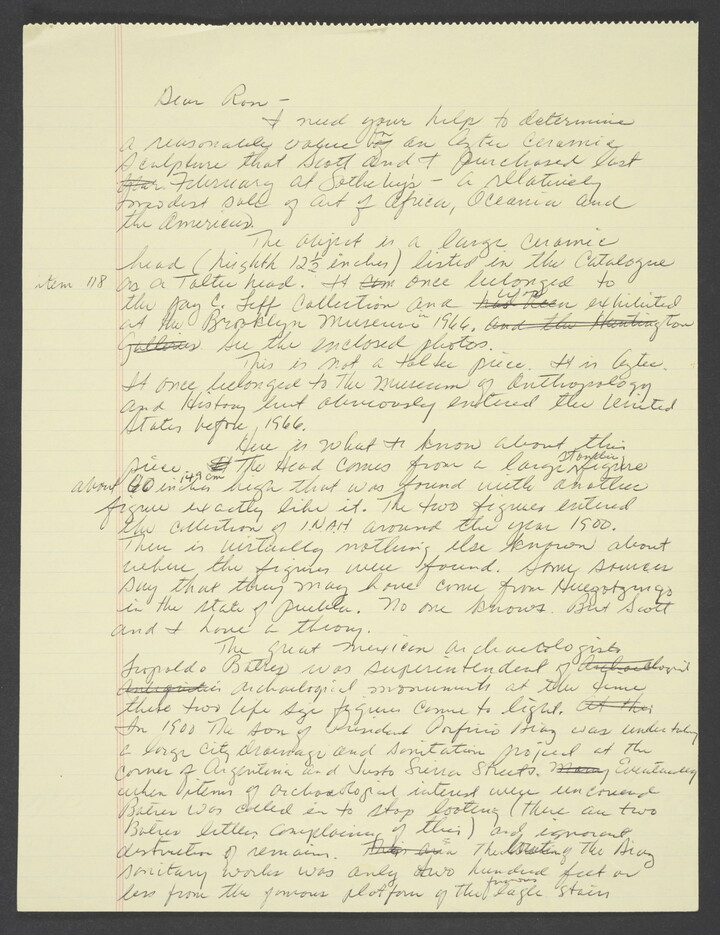 Dear Ron -
I need your help to determine
a reasonably value for an Aztec ceramic
sculpture that Scott and I purchased last
February at Sotheby's - a relatively
modest sale of art of Africa, Oceania and
the Americas.
The object is a large ceramic
head (highth 12½ inches) listed in the Catalogue
item 118 as a Toltec head. It once belonged to
the Jay C. Leff Collection and was exhibited
at the Brooklyn Museum 1966, and the Huntington
Galleries See the enclosed photos.
This is not a Toltec piece. It is Aztec.
It once belonged to the Museum of Anthropology
and History but obviously entered the United
States before 1966.
Here is what I know about this
piece. The Head comes from a large standing figure
about 60 inches 149 cm high that was found with another
figure exactly like it. The two figures entered
the collection of INAH around the year 1900.
There is virtually nothing else known about
where the figures were found. Some sources
say that they may have come from Huegotzingo
in the state of Puebla. No one knows. But Scott
and I have a theory.
The great Mexican archaeologists
Leopoldo Batres was superintendent of
archaeological monuments at the time
these two life size figures came to light. At this
In 1900 the son of President Porfirio Diaz was undertaking
a large city drainage and sanitation project at the
corner of Argentina and Justo Sierra Streets. Many Eventually
when items of archaeological interest were uncovered
Batres was called in to stop looting (there are two
Batres letters complaining of this) and ignorant
destruction of remains. The location of the Diaz
sanitary works was only two hundred feet or
less from the famous platform of the famous Eagle Stairs